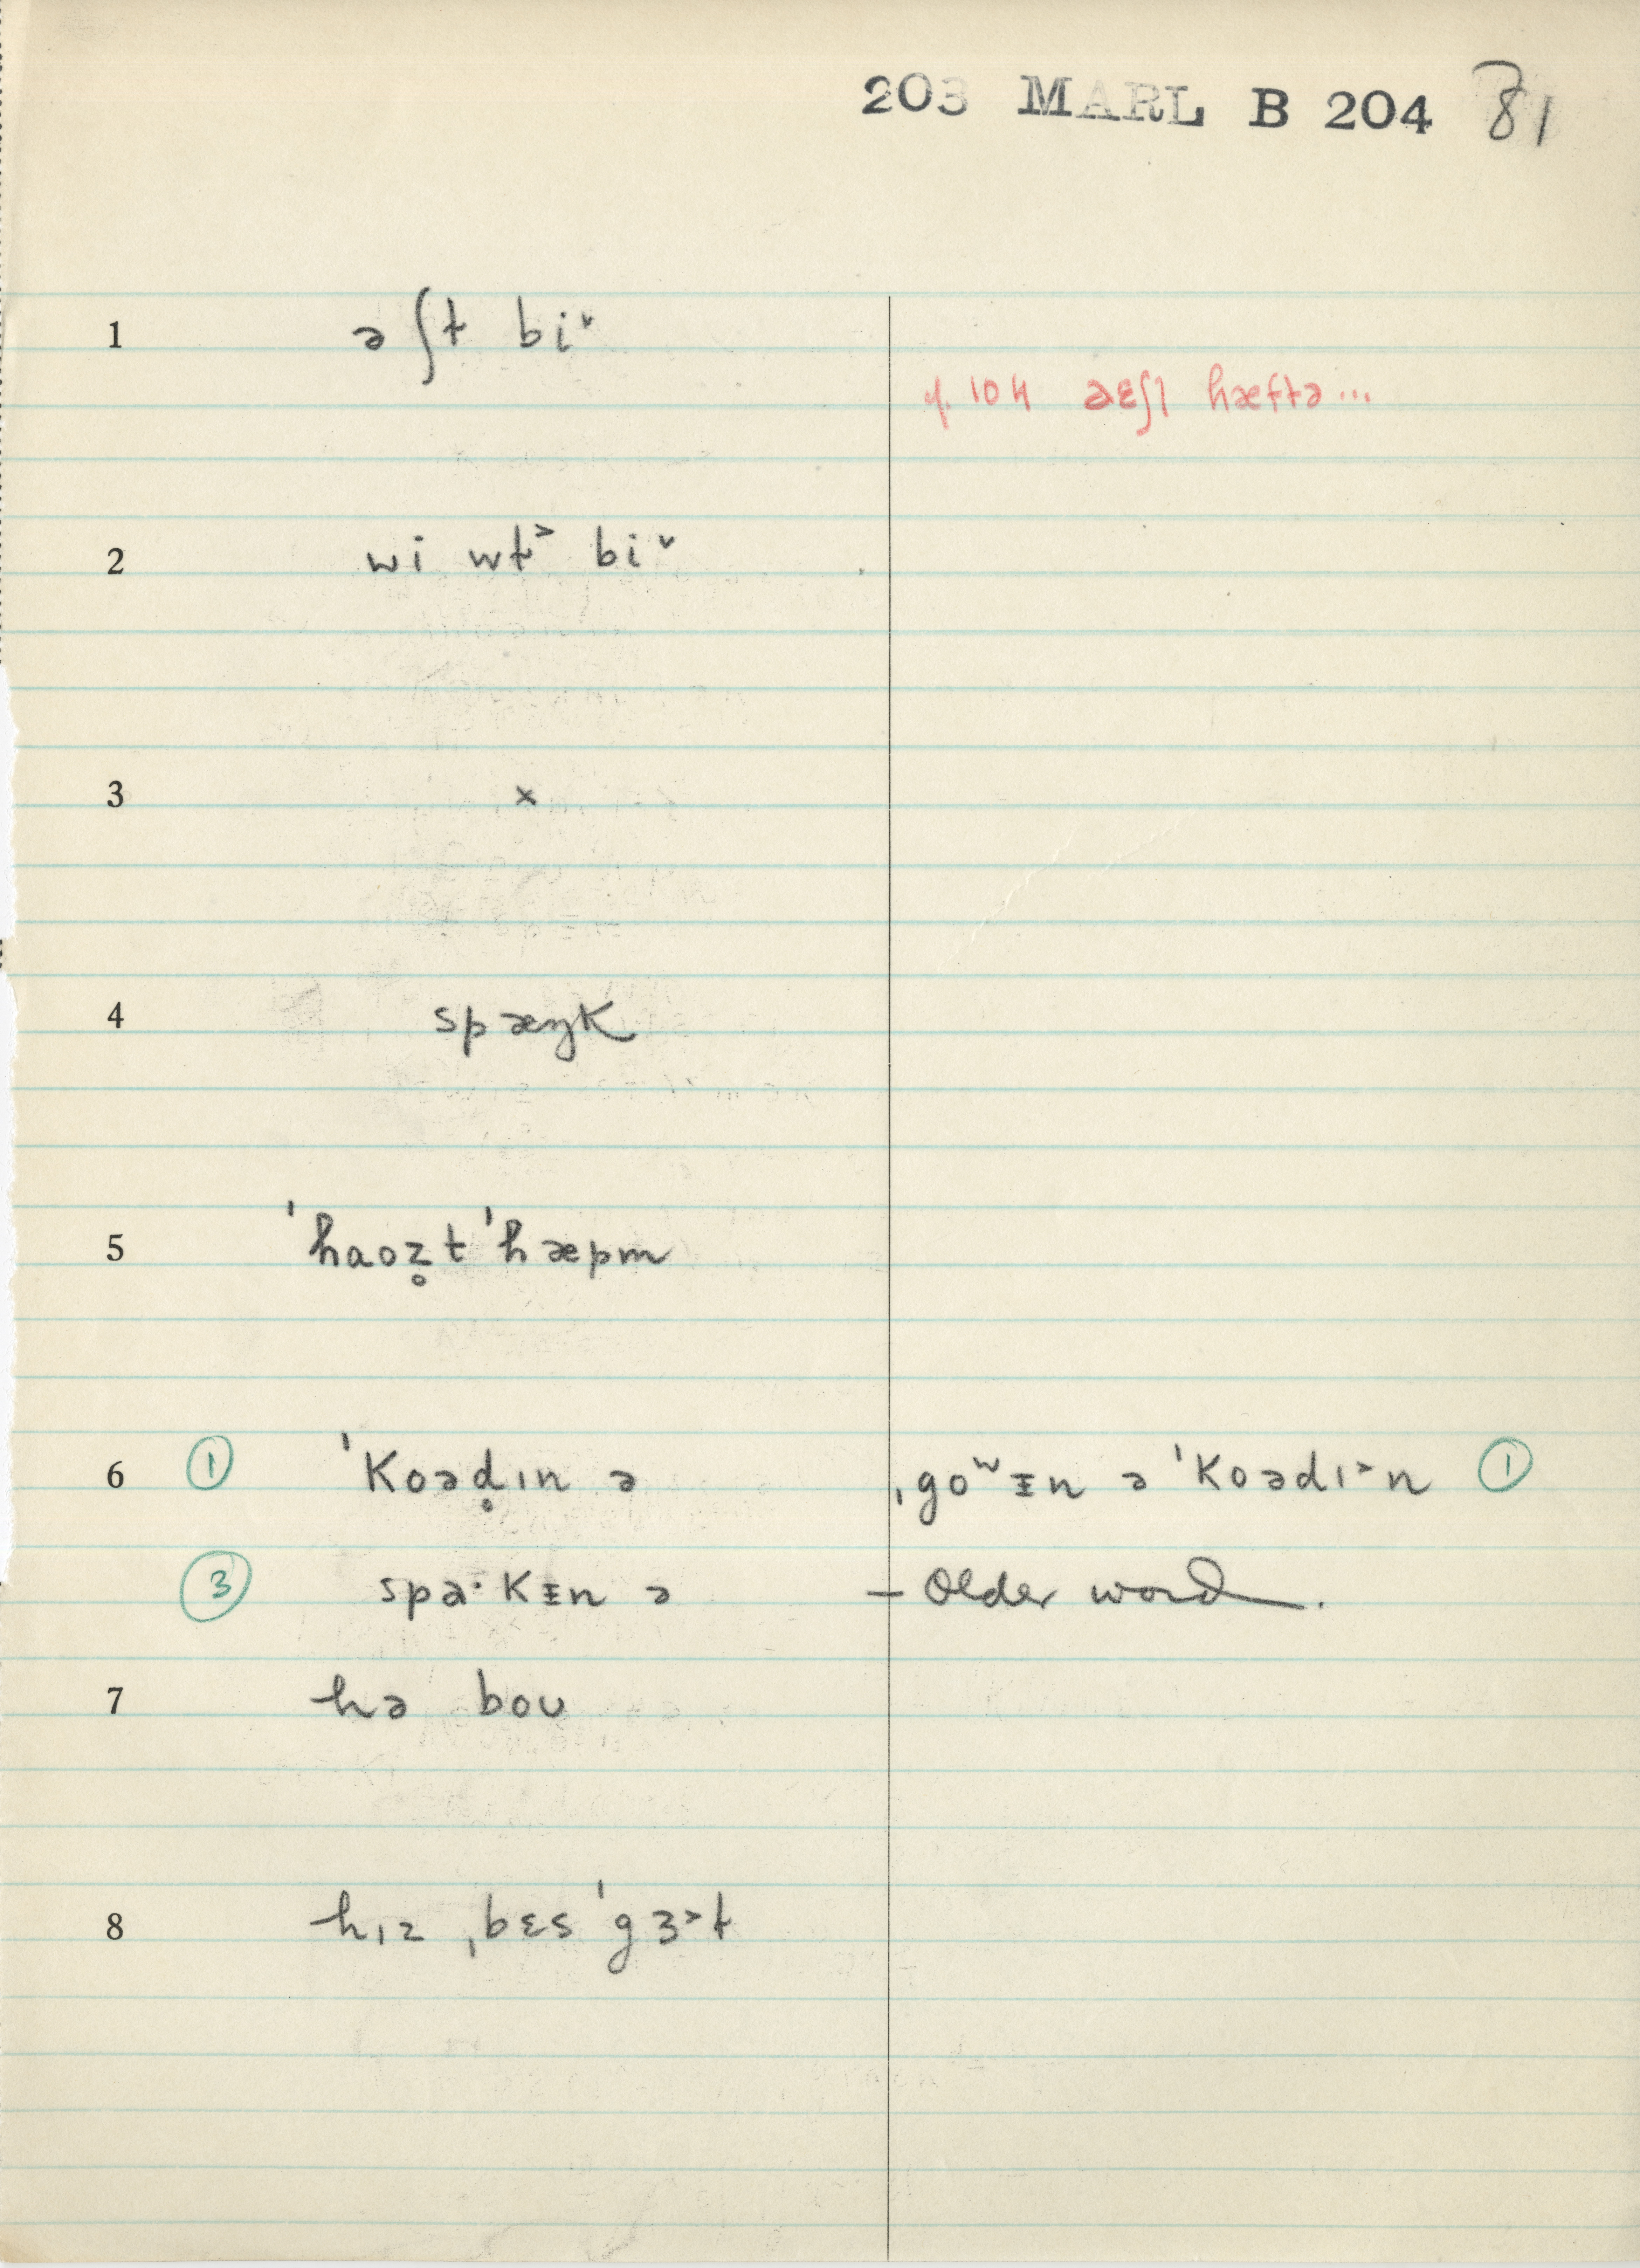 203 MARL B 204 81
1 ə ʃt bi˅
104 aɛʃl hæftə...
2 wi wt˃ bi˅
3 ×
4 spæŋk
5 ˈhaoz̥t ˈhæpm
6 ① ˈkoəd̥ɪn ə ˌgoʷᵻn ə ˈkoədɪ˃n ①
③ spa·kᵻn ə – Older word.
7 hə boʊ
8 hɪz ˌbɛs ˈgɜ˃t